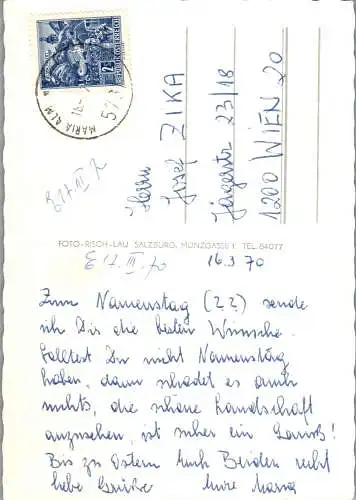 REPUBLIK ÖSTERREICH
MARIA ALM
Herrn
Josef ZIKA
Jägerstr 23/18
1200 WIEN 20
E 17. III. 70
FOTO-RISCH-LAU SALZBURG, MÜNZGASSE 1 TEL. 84077
E 17. III. 70
16.3.70
Zum Namenstag (??) sende
ich Dir die besten Wünsche.
Solltest Du nicht Namenstag
haben, dann schadet es auch
nichts, die schöne Landschaft
anzusehen, ist sicher ein Genuß!
Bis zu Ostern Euch Beiden recht
liebe Grüße Eure Maria